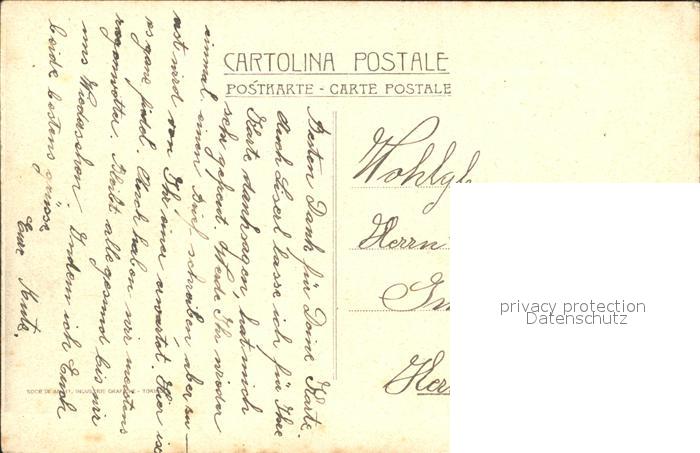 CARTOLINA POSTALE
POSTKARTE - CARTE POSTALE
Besten Dank für Deine Karte.
durch Liserl lasse ich für Ihre
Karte danksagen, hat mich
sehr gefreut. Werde Ihr wieder
einmal einen Brief schreiben aber zu-
erst wird von Ihr einer erwartet. Hier ist
es ganz fidel. Auch haben wir meistens
regenwetter. Bleibt alle gesund bis wir
uns Wiedersehen. Indem ich Euch
beide bestens grüsse
Eure
Wohlgb
Herrn
Her
privacy protection
Datenschutz